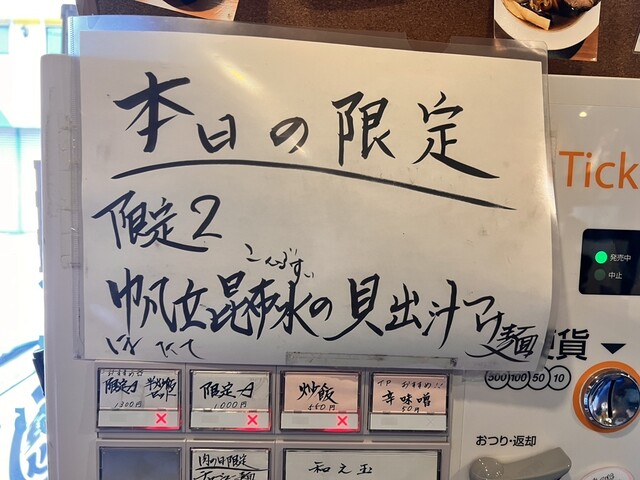 本日の限定
限定2
こんぶすい
帆立昆布水の貝出汁つけ麺
ほたて
Tick
発売中
中止
硬貨
500 100 50 10
おつり・返却
限定
1300円
限定
1000円
炒飯
550円
TP おすすめ!!
辛味噌
50円
肉の日限定
和え玉